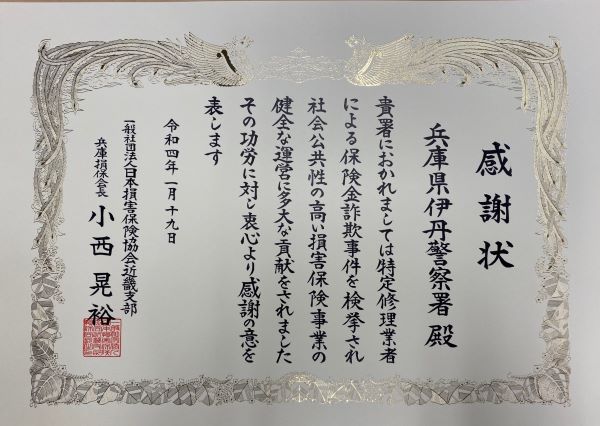 感謝状
兵庫県伊丹警察署 殿
貴署におかれましては特定修理業者
による保険金詐欺事件を検挙され
社会公共性の高い損害保険事業の
健全な運営に多大な貢献をされました
その功労に対し衷心より感謝の意を
表します
令和四年一月十九日
一般社団法人日本損害保険協会近畿支部
兵庫損保会長 小西晃裕